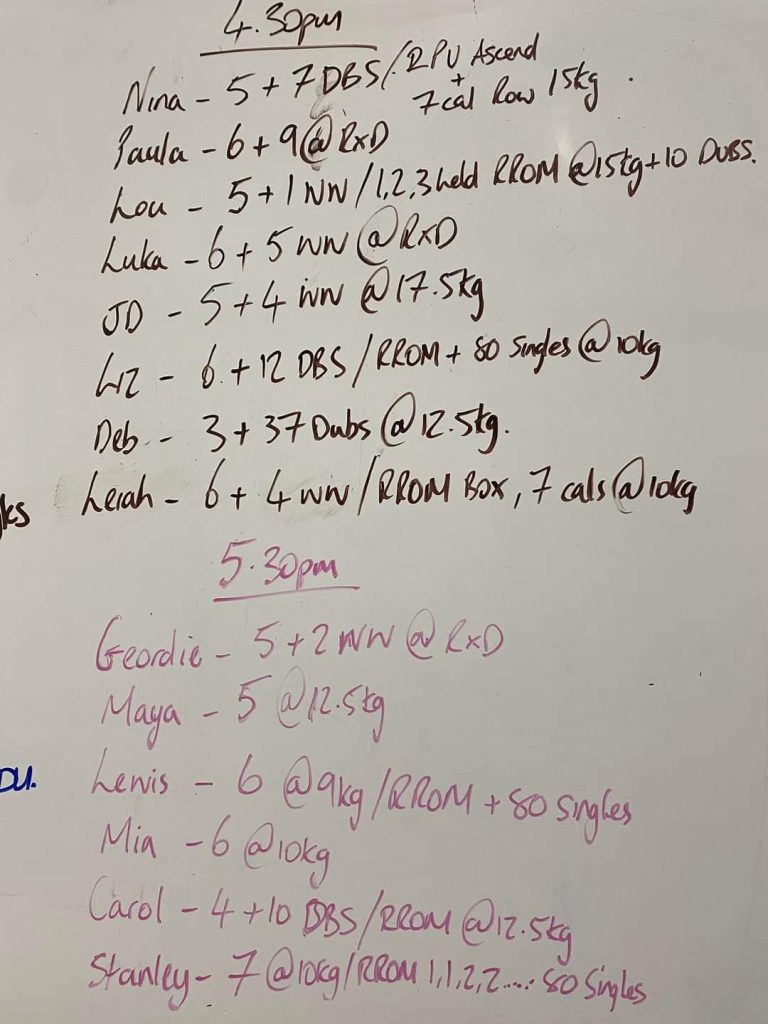 4.30pm
Nina - 5 + 7 DBS/RPU Ascend
+
7cal Row 15kg
Paula - 6 + 9 @ RxD
Lou - 5 + 1 WW / 1,2,3 held RROM @ 15kg + 10 DUBS.
Luka - 6 + 5 WW @ RxD
JD - 5 + 4 WW @ 17.5kg
Liz - 6 + 12 DBS / RROM + 80 Singles @ 10kg
Deb - 3 + 37 Dubs @ 12.5kg.
Leiah - 6 + 4 WW / RROM BOX, 7 cals @ 10kg
5.30pm
Geordie - 5 + 2 WW @ RxD
Maya - 5 @ 12.5kg
DU.
Lewis - 6 @ 9kg / RROM + 80 Singles
Mia - 6 @ 10kg
Carol - 4 + 10 DBS / RROM @ 12.5kg
Stanley - 7 @ 10kg / RROM 1,1,2,2.... 80 Singles